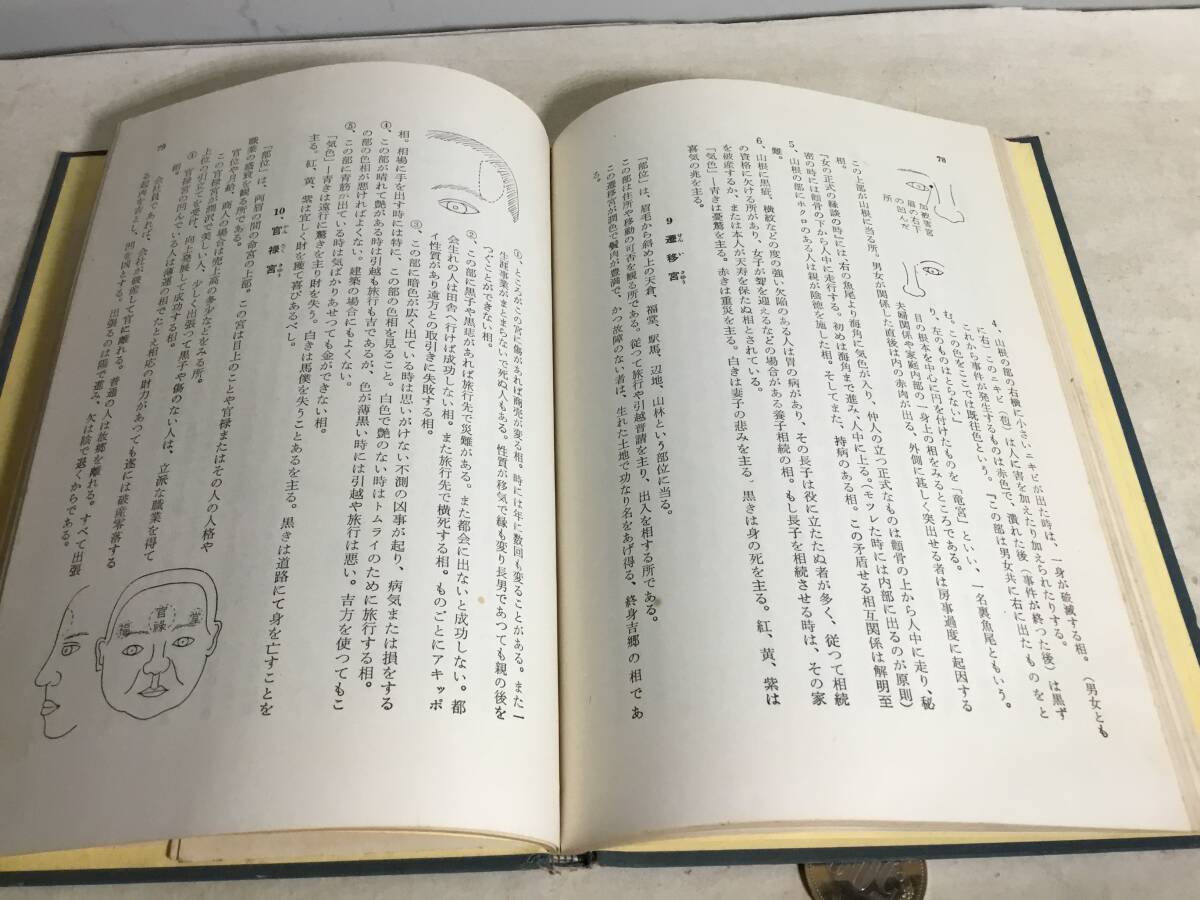 78
4、山根の部の右横に小さいニキビが出た時は、一身が破滅する相。（男女とも
に右）このニキビ（包）は人に害を加えたり加えられたりする。
これから事件が発生するものは赤色で、潰れた後（事件が終つた後）は黒ず
む。この色をここでは既往色という。『この部は男女共に右に出たものをと
り、左のものはとらない』
目の根本を中心に円を付けたものを「竜宮」といい、一名裏魚尾ともいう。
夫婦関係や家庭内部の一身上の相をみるところである。
加教害官
眉の右下
の凹んだ
所
この上部が山根に当る所。男女が関係した直後は内の赤肉が出る。外側に甚しく突出せる者は房事過度に起因する
相。
「女の正式の縁談の時」には、右の魚尾より海角に気色が入り、仲人の立つ正式なものは顴骨の上から人中に走り、秘
密の時には顴骨の下から人中に走行する。初めは海角まで進み人中に上る。（モツレた時には内部に出るのが原則）
5、山根の部にホクロのある人は親が陰徳を施した相。そしてまた、持病のある相。この矛盾せる相互関係は解明至
難。
6、山根に黒疵、横紋などの度の強い欠陥のある人は胃の病があり、その長子は役に立たたぬ者が多く、従つて相続
の資格に欠ける所があり、女子が聟を迎えるなどの場合がある養子相続の相。もし長子を相続させる時は、その家
を破産するか、または本人が天寿を保たぬ相とされている。
「気色」―青きは憂驚を主る。赤きは重災を主る。白きは妻子の悲みを主る。黒きは身の死を主る。紅、黄、紫は
喜気の兆を主る。
9 遷移宮
せんいきゆう
「部位」は、眉毛から斜め上の天倉、福堂、駅馬、辺地、山林という部位に当る。
この部は住所や移動の可否を観る所である。従つて旅行や引越普請を主り、出入を相する所である。
この遷移宮が潤色で鬢肉が豊満で、かつ故障のない者は、生れた土地で功なり名をあげ得る、終身吉郷の相であ
る。
①、ところがこの宮に傷があれば商売が変る相。時には年に数回も変ることがある。また一
生涯事業がまとまらないで死ぬ人もある。性質が移気で縁も変り長男であつても親の後を
つぐことができない相。
②、この部に黒子や黒痣があれば旅行先で災難がある。また都会に出ないと成功しない。都
会生れの人は田舎へ行けば成功しない相。また旅行先で横死する相。ものごとにアキッポ
イ性質があり遠方との取引に失敗する相。
③、この部に暗色が広く出ている時は思いがけない不測の凶事が起り、病気または損をする
相。相場に手を出す時には特に、この部の色相を見ること。白色で艶のない時はトムライのために旅行する相。
④、この部が晴れて艶がある時は引越も旅行も吉であるが、色が薄黒い時には引越や旅行は悪い。吉方を使つてもこ
の部の色相が悪ければよくない。建築の場合にもよくない。
⑤、この部に青筋が出ている時は気ばかりあせつても金ができない相。
「気色」―青きは遠行に驚きを主り財を失う。白きは馬僕を失うことあるを主る。黒きは道路にて身を亡すことを
主る。紅、黄、紫は宜しく財を獲て喜びあるべし。
10、官禄宮
かんろくきゆう
「部位」は、両眉の間の命宮の上部。この宮は目上のことや官禄またはその人の人格や
職業の盛衰を観る所である。
官位や月給、商人の場合は売上高の多少などをみる所。
この官禄宮が潤沢で美しい人、少しく出張って黒子や傷のない人は、立派な職業を得て
上位の引立てを受け、向上発展して成功する相。
①、官禄宮の凹んでいる人は薄運の相でたとえ相応の財力があつても遂には破産零落する
相。
会社員であれば、会社が破産して官に離れる。普通の人は故郷を離れる。すべて出張
る起肉を吉とし、凹を凶とする。出張るのは陽で進み、欠は陰で退くからである。
福
官禄
堂
79